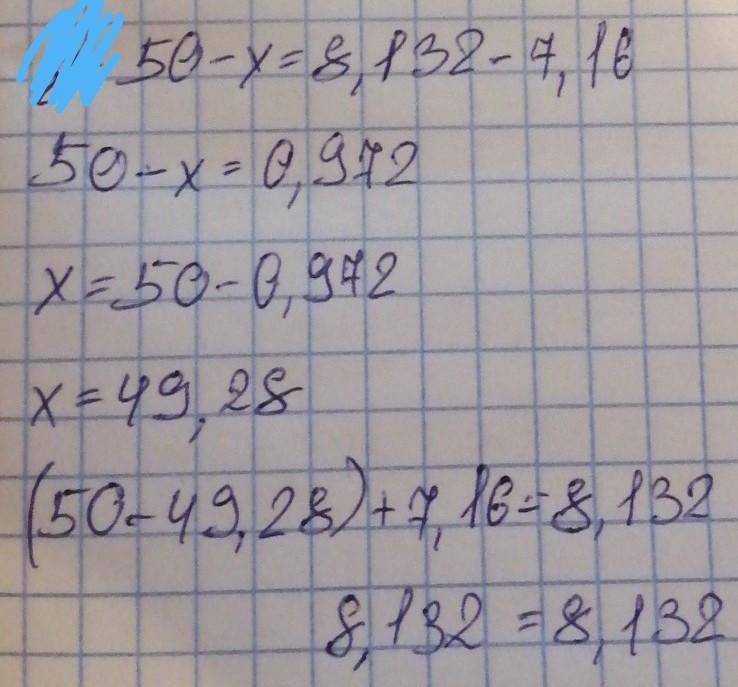 50-x=8,132-7,16
50-x=0,972
x=50-0,972
x=49,28
(50-49,28)+7,16=8,132
8,132=8,132